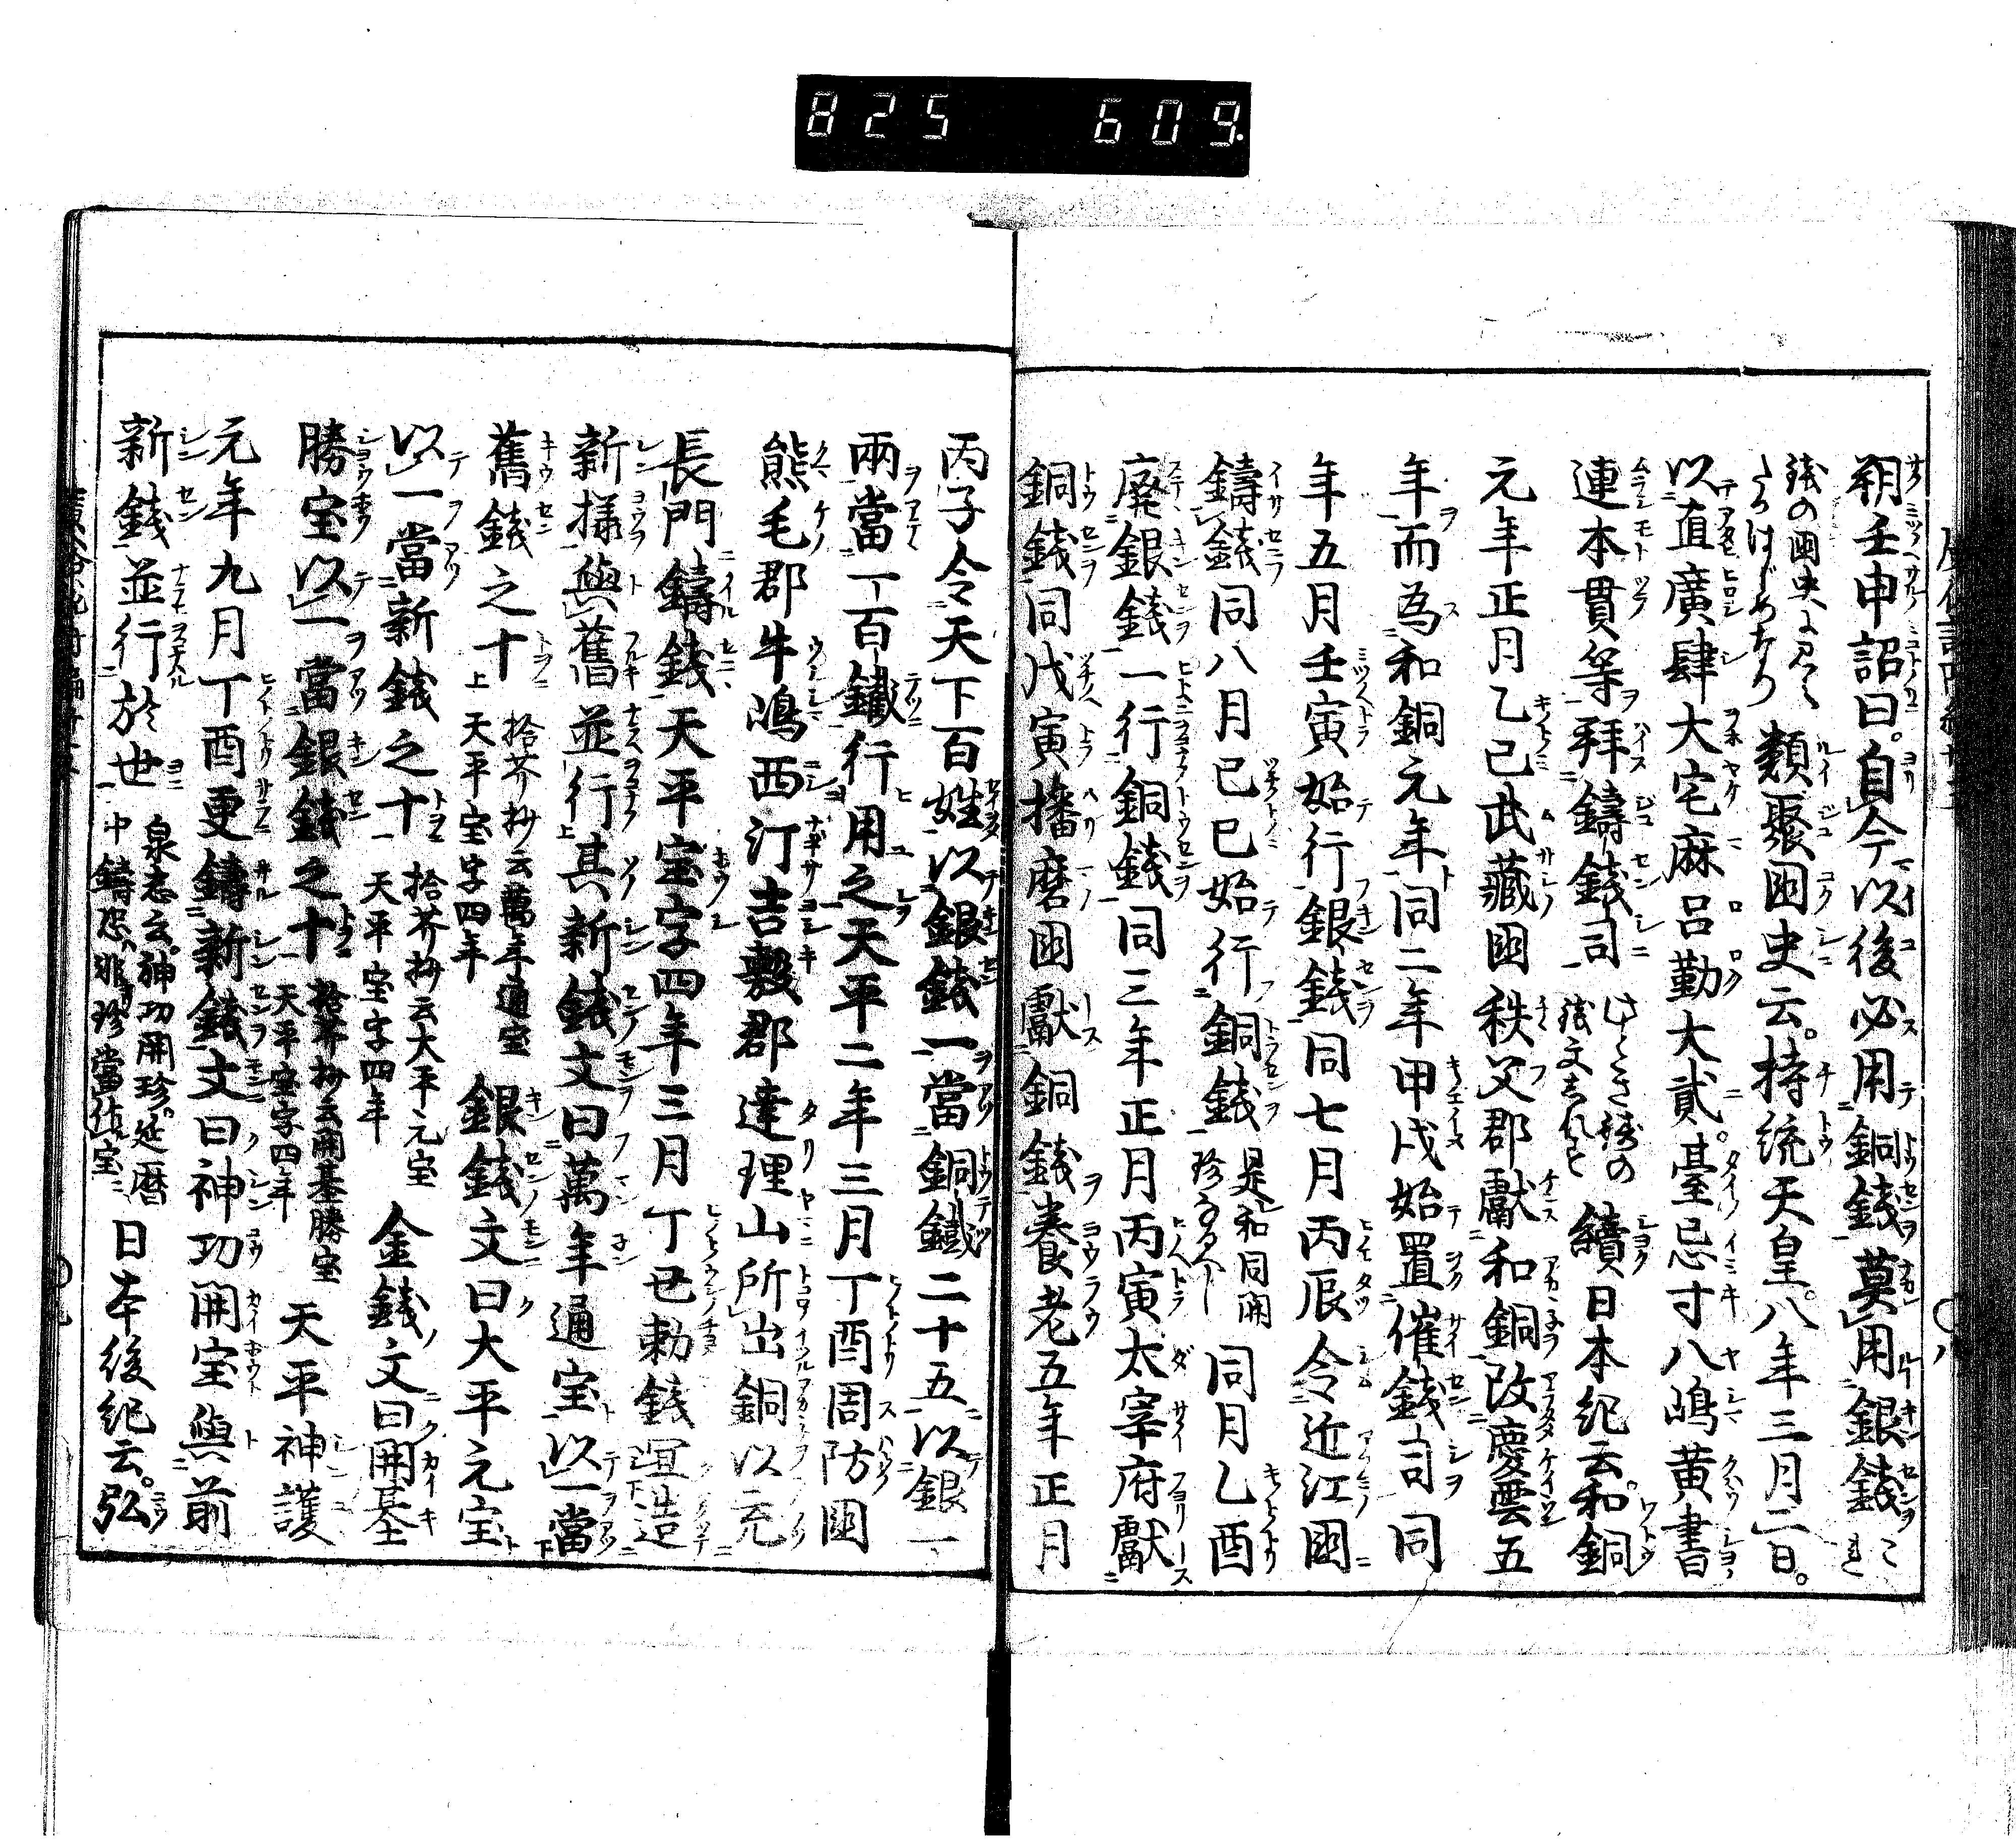 825 609.
朔壬申詔曰。自今以後必用銅錢莫用銀錢
錢の国史に見へ
たるはじめなり
類聚国史云。持統天皇。八年三月二日。
以直廣肆大宅麻呂勤大貳。臺忌寸八嶋黄書
連本貫等拜鑄錢司
錢文
續日本紀云。和銅
元年正月乙巳武藏国秩父郡獻和銅改慶雲五
年而為和銅元年同二年甲戌始置催錢司同
年五月壬寅始行銀錢同七月丙辰令近江国
鑄錢同八月己巳始行銅錢
是和同開
珍なるべし
同月乙酉
廢銀錢一行銅錢同三年正月丙寅太宰府獻
銅錢同戊寅播磨国獻銅錢養老五年正月
丙子令天下百姓以銀錢一當銅鐵二十五以銀一
兩當一百鐵行用之天平二年三月丁酉周防国
熊毛郡牛嶋西汀吉敷郡達理山所出銅以充
長門鑄錢天平宝字四年三月丁丑勅錢宜造
新樣與舊並行其新錢文曰萬年通宝以一當
舊錢之十
拾芥抄云萬年通宝
天平宝字四年
銀錢文曰大平元宝
以一當新錢之十
拾芥抄云大平元宝
天平宝字四年
金錢文曰開基
勝宝以一當銀錢之十
拾芥抄云開基勝宝
天平宝字四年
天平神護
元年九月丁酉更鑄新錢文曰神功開宝與前
新錢並行於世
泉志云。神功開珍。延暦
中鑄恐非珍當作宝
日本後紀云。弘